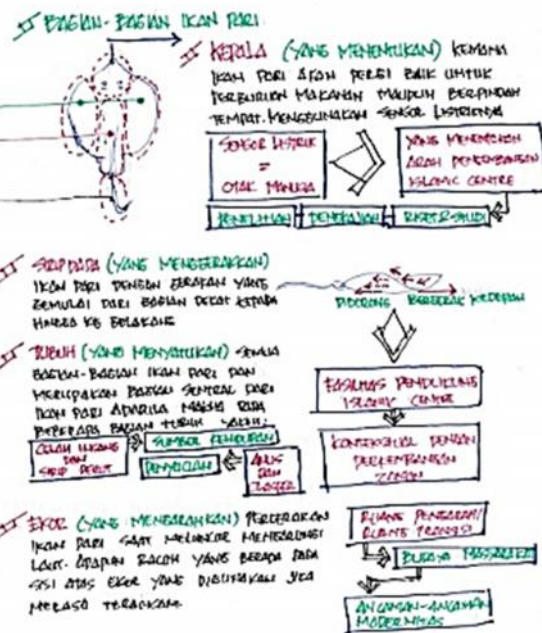 BAGIAN-BAGIAN IKAN PARI
KEPALA (YANG MENENTUKAN) KEMANA
IKAN PARI AKAN PERGI BAIK UNTUK
PERBURUAN MAKANAN MAUPUN BERPINDAH
TEMPAT. MENGGUNAKAN SENSOR LISTRIKNYA
SENSOR LISTRIK
=
OTAK MANUSIA
YANG MENENTUKAN
ARAH PERKEMBANGAN
ISLAMIC CENTRE
PENELITIAN
PENGKAJIAN
RISET & STUDI
SIRIP DADA (YANG MENGGERAKKAN)
IKAN PARI DENGAN GERAKAN YANG
DIMULAI DARI BAGIAN DEKAT KEPALA
HINGGA KE BELAKANG
DIDORONG
BERGERAK KEDEPAN
TUBUH (YANG MENYATUKAN) SEMUA
BAGIAN-BAGIAN IKAN PARI DAN
MERUPAKAN BAGIAN SENTRAL DARI
IKAN PARI APABILA
BEBERAPA BAGIAN TUBUH
CELAH INSANG
DAN
SIRIP PERUT
SUMBER
PENYUCIAN
ANUS
DAN
FASILITAS PENDUKUNG
ISLAMIC CENTRE
KONTEKSTUAL DENGAN
PERKEMBANGAN
ZAMAN
EKOR (YANG MENGARAHKAN) PERGERAKAN
IKAN PARI SAAT MELUNCUR MENGARUNGI
LAUT. ADAPUN RACUN YANG BERADA PADA
SISI ATAS EKOR YANG DIGUNAKAN JIKA
MERASA TERANCAM
RUANG PENGARAH/
RUANG TRANSISI
BUDAYA MASYARAKAT
ANCAMAN-ANCAMAN
MODERNITAS